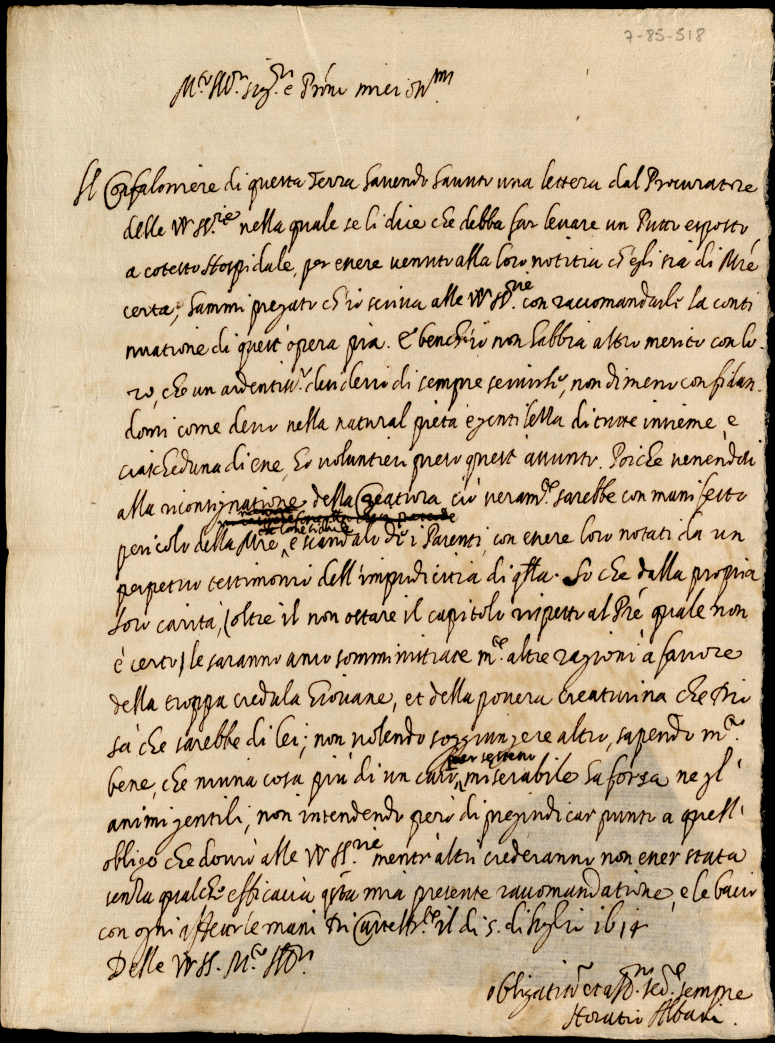 7-85-518
M.to Ill.ri Sig.ri e Prōni miei oss.mi
Il Confaloniere di questa Terra havendo havuto una lettera dal Procuratore
delle VV SS.rie nella quale se li dice che debba far levare un Putto esposto
a cotesto Hospidale, per essere venuto alla loro notitia ch'egli sia di Mrē
certa; hammi pregato ch'io scriva alle VV SS.rie con raccomandarle la conti
nuatione di quest'opera pia. E bench'io non habbia altro merito con lo-
ro, che un ardentiss.o desiderio di sempre servirle, nondimeno confidan-
domi come devo nella natural pietà e gentilezza di tutte insieme, e
ciascheduna di esse, ho voluntieri preso quest'assunto. Poiche venendosi
alla riconsignatione della Creatura ciò veram.te sarebbe con manifesto
pericolo della Mrē, e scandalo di i Parenti, con essere loro notati da un
perpetuo testimonio dell'impudicitia di q̄lla. So che dalla propria
loro carità, (oltre il non ostare il capitolo rispetto al Prē quale non
è certo) le saranno anco somministrate m.te altre ragioni à favore
della troppa credula Giovane, et della povera creaturina che Dio
sà che sarebbe di lei; non volendo soggiungere altro, sapendo m.to
per se stesso
bene, che niuna cosa più di un caso miserabile ha forza negl'
animi gentili, non intendendo però di pregiudicar punto a quell'
obligo che dovrò alle VV SS.rie mentr'altri crederanno non esser stata
senza qualche efficacia q̄sta mia presente raccomandatione, e le bacio
con ogni affetto le mani Di il dì 5. di luglio 1614
Delle VV SS. M.to Ill.ri
Obligatiss.o et aff.mo ser.re sempre
Horatio Albani.